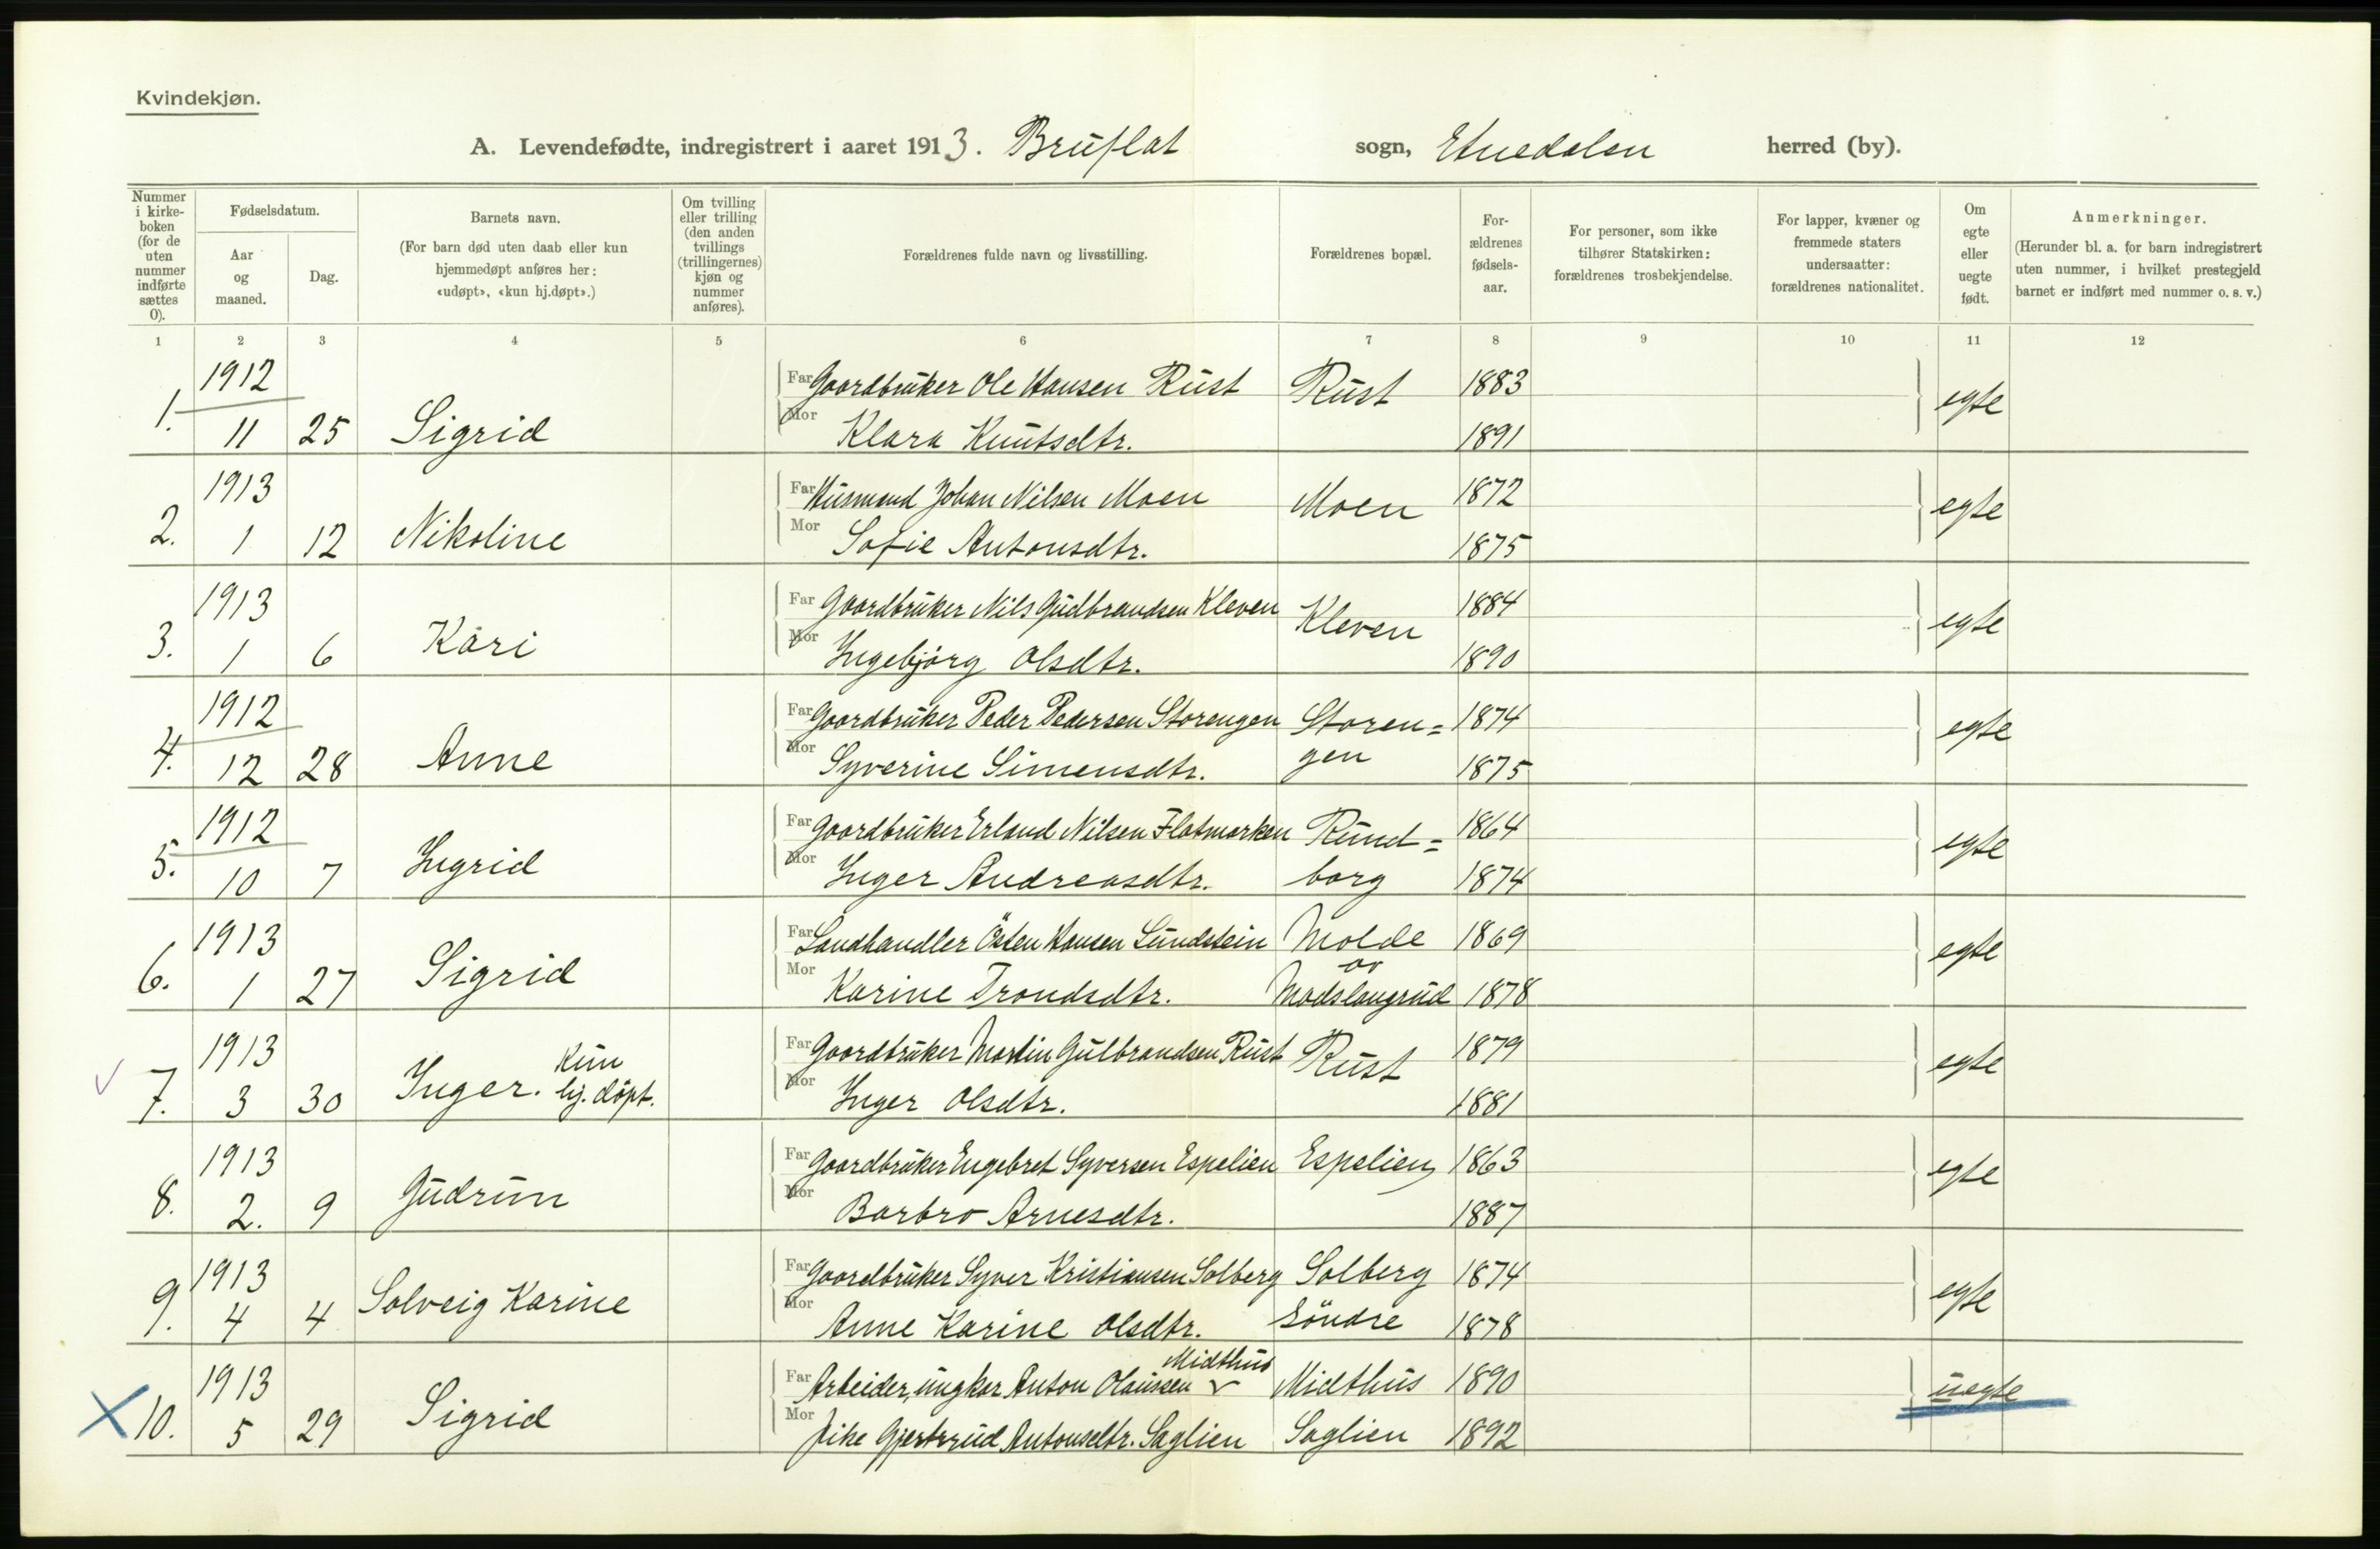 Kvindekjøn.
A. Levendefødte, indregistrert i aaret 1913. Bruflat sogn, Etnedalen herred (by).
Nummer i kirkeboken (for de uten nummer indførte sættes 0).
Fødselsdatum.
Aar og maaned.
Dag.
Barnets navn.
(For barn død uten daab eller kun hjemmedøpt anføres her: «udøpt», «kun hj.døpt».)
Om tvilling eller trilling (den anden tvillings (trillingernes) kjøn og nummer anføres).
Forældrenes fulde navn og livsstilling.
Forældrenes bopæl.
Forældrenes fødselsaar.
For personer, som ikke tilhører Statskirken: forældrenes trosbekjendelse.
For lapper, kvæner og fremmede staters undersaatter: forældrenes nationalitet.
Om egte eller uegte født.
Anmerkninger.
(Herunder bl. a. for barn indregistrert uten nummer, i hvilket prestegjeld barnet er indført med nummer o. s. v.)
1 2 3 4 5 6 7 8 9 10 11 12
1912 Far Gaardbruker Ole Hansen Rust Rust 1883 egte
1. 11 25 Sigrid Mor Klara Knutsdtr. 1891
1913 Far Husmand Johan Nilsen Moen Moen 1872 egte
2. 1 12 Nikoline Mor Sofie Antonsdtr. 1875
1913 Far Gaardbruker Nils Gudbrandsen Kleven Kleven 1884 egte
3. 1 6 Kari Mor Ingebjörg Olsdtr. 1890
1912 Far Gaardbruker Peder Pedersen Storengen Storen= 1874 egte
4. 12 28 Anne Mor Syverine Simensdtr. gen 1875
1912 Far Gaardbruker Erland Nilsen Flatmarken Rund= 1864 egte
5. 10 7 Ingrid Mor Inger Andreasdtr. borg 1874
1913 Far Landhandler Östen Hansen Sundstein Molde 1869 egte
av
6. 1 27 Sigrid Mor Karine Trondsdtr. Madslangrud 1878
1913 Kun Far Gaardbruker Martin Gulbrandsen Rust Rust 1879 egte
7. 3 30 Inger. hj. döpt. Mor Inger Olsdtr. 1881
1913 Far Gaardbruker Engebret Syversen Espelien Espelien 1863 egte
8. 2. 9 Gudrun Mor Barbro Arnesdtr. 1887
1913 Far Gaardbruker Syver Kristiansen Solberg Solberg 1874 egte
9. 4 4 Solveig Karine Mor Anne Karine Olsdtr. Söndre 1878
Midthus
1913 Far Arbeider, ungkar Anton Olaussen Midthus 1890 uegte
10. 5 29 Sigrid Mor Pike Gjertrud Antonsdtr. Saglien Saglien 1892